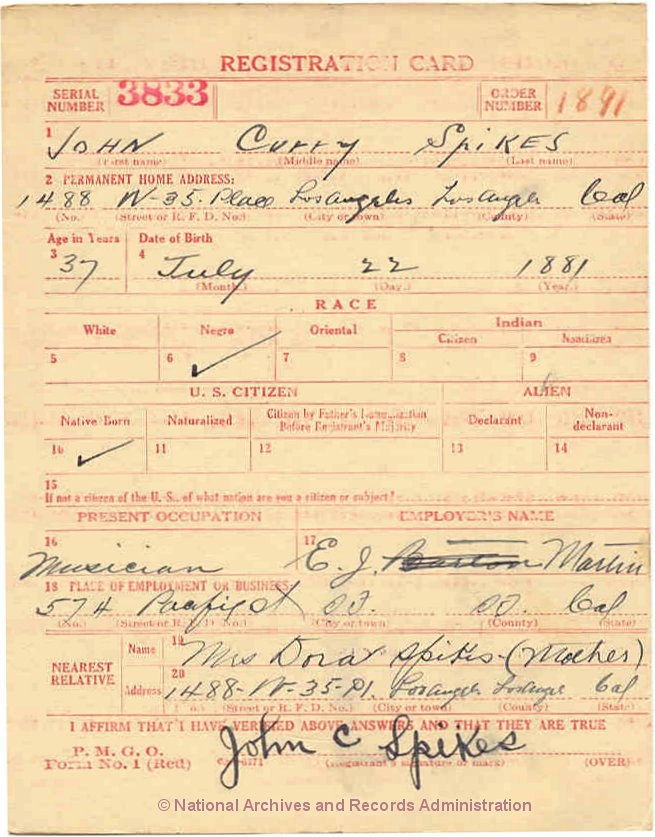 REGISTRATION CARD
SERIAL NUMBER 3833 ORDER NUMBER 1891
1 JOHN CURRY SPIKES
(First name) (Middle name) (Last name)
2 PERMANENT HOME ADDRESS:
1488 W-35-Place Los Angeles Los Angeles Cal
(No.) (Street or R. F. D. No.) (City or town) (County) (State)
Age in Years Date of Birth
3 37 4 July 22 1881
(Month.) (Day.) (Year.)
RACE
White Negro Oriental Indian
Citizen Noncitizen
5 6 ✓ 7 8 9
U. S. CITIZEN ALIEN
Native Born Naturalized Citizen by Father's Naturalization Before Registrant's Majority Declarant Non-declarant
10 ✓ 11 12 13 14
15
If not a citizen of the U. S., of what nation are you a citizen or subject?
PRESENT OCCUPATION EMPLOYER'S NAME
16 Musician 17 E. J. Barton Martin
18 PLACE OF EMPLOYMENT OR BUSINESS:
574 Pacific st Cal
(No.) (Street or R. F. D. No.) (City or town) (County) (State)
NEAREST RELATIVE
Name 19 Mrs Dora Spikes-(Mother)
Address 20 1488-W-35-Pl. Los Angeles Los Angeles Cal
(No.) (Street or R. F. D. No.) (City or town) (County) (State)
I AFFIRM THAT I HAVE VERIFIED ABOVE ANSWERS AND THAT THEY ARE TRUE
P. M. G. O.
Form No. 1 (Red) John C Spikes
(Registrant's signature or mark) (OVER)
© National Archives and Records Administration